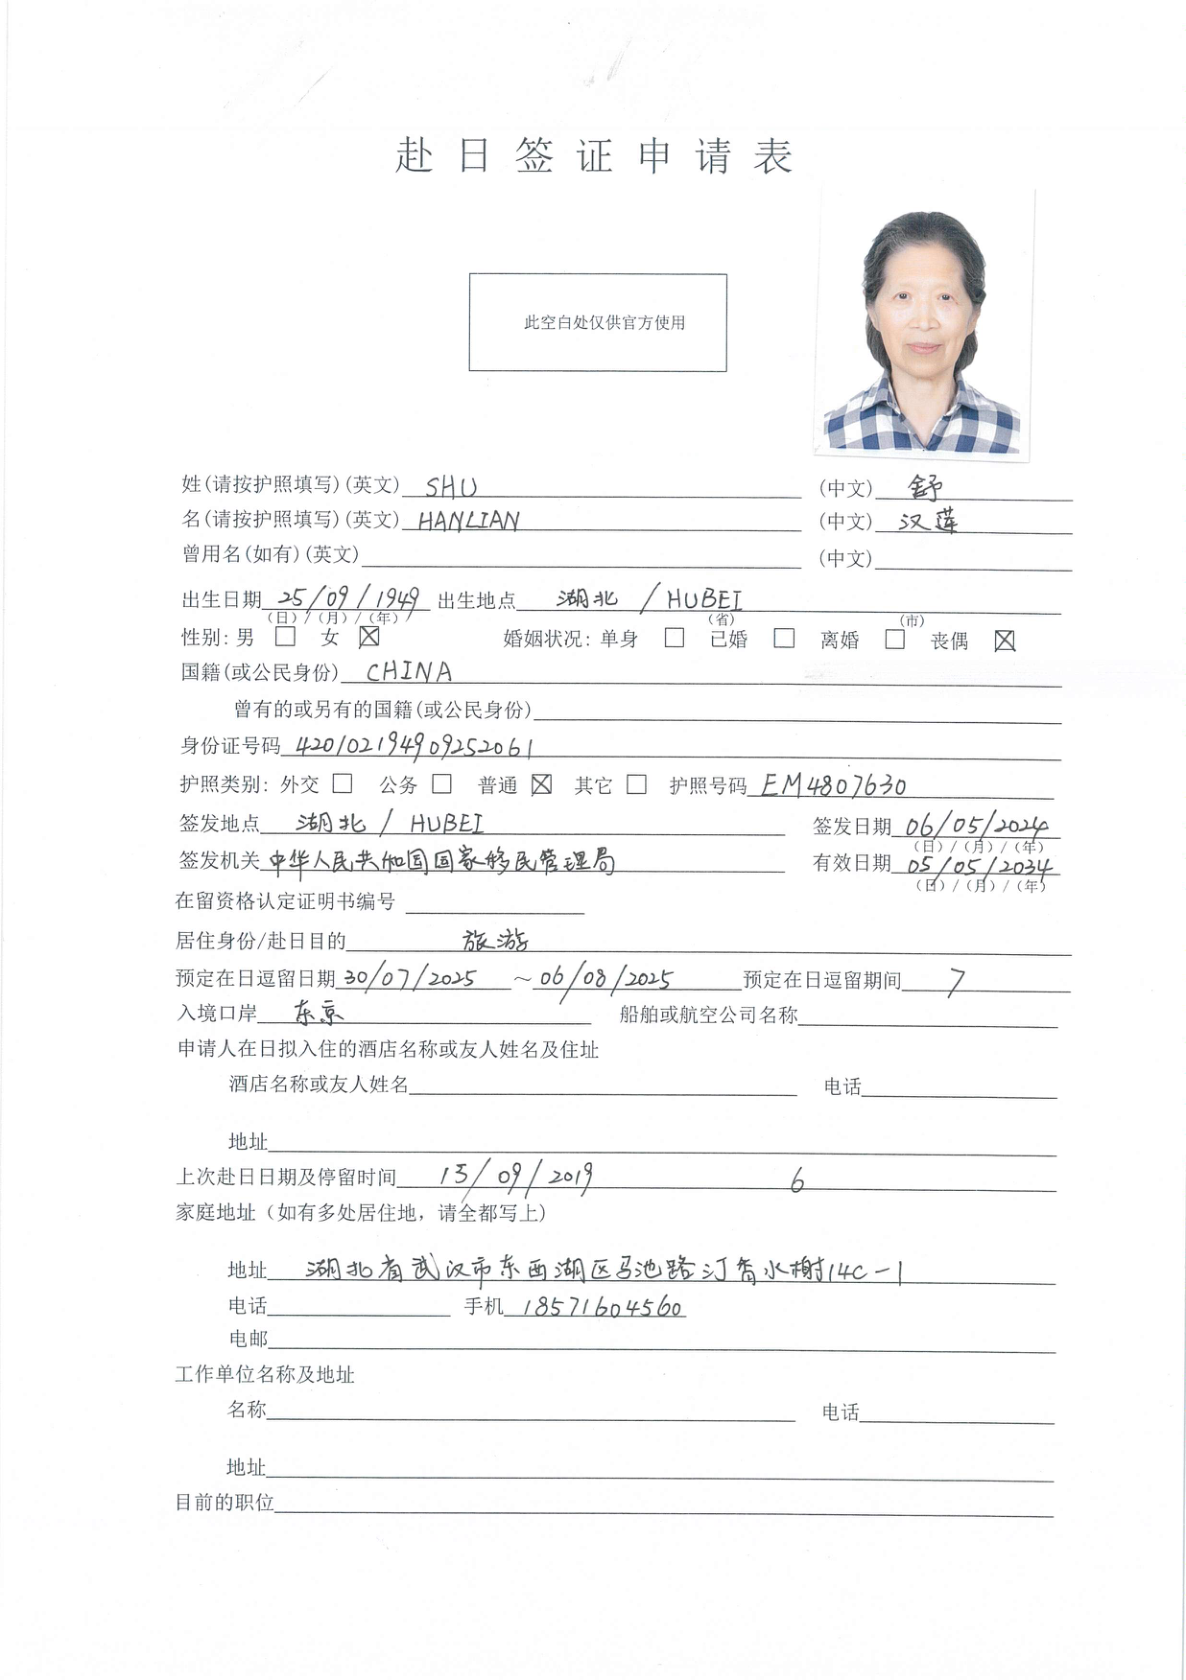 赴日签证申请表
此空白处仅供官方使用
姓(请按护照填写)(英文) SHU (中文) 舒
名(请按护照填写)(英文) HANLIAN (中文) 汉莲
曾用名(如有)(英文) (中文)
出生日期 25/09/1949 出生地点 湖北 / HUBEI
(日)/(月)/(年) (省) (市)
性别: 男 □ 女 ☒ 婚姻状况: 单身 □ 已婚 □ 离婚 □ 丧偶 ☒
国籍(或公民身份) CHINA
曾有的或另有的国籍(或公民身份)
身份证号码 420102194909252061
护照类别: 外交 □ 公务 □ 普通 ☒ 其它 □ 护照号码 EM4807630
签发地点 湖北 / HUBEI 签发日期 06/05/2024
(日)/(月)/(年)
签发机关 中华人民共和国国家移民管理局 有效日期 05/05/2034
(日)/(月)/(年)
在留资格认定证明书编号
居住身份/赴日目的 旅游
预定在日逗留日期 30/07/2025 ~ 06/08/2025 预定在日逗留期间 7
入境口岸 东京 船舶或航空公司名称
申请人在日拟入住的酒店名称或友人姓名及住址
酒店名称或友人姓名 电话
地址
上次赴日日期及停留时间 15/09/2019 6
家庭地址（如有多处居住地，请全都写上)
地址 湖北省武汉市东西湖区马池路汀香水榭14C-1
电话 手机 18571604560
电邮
工作单位名称及地址
名称 电话
地址
目前的职位